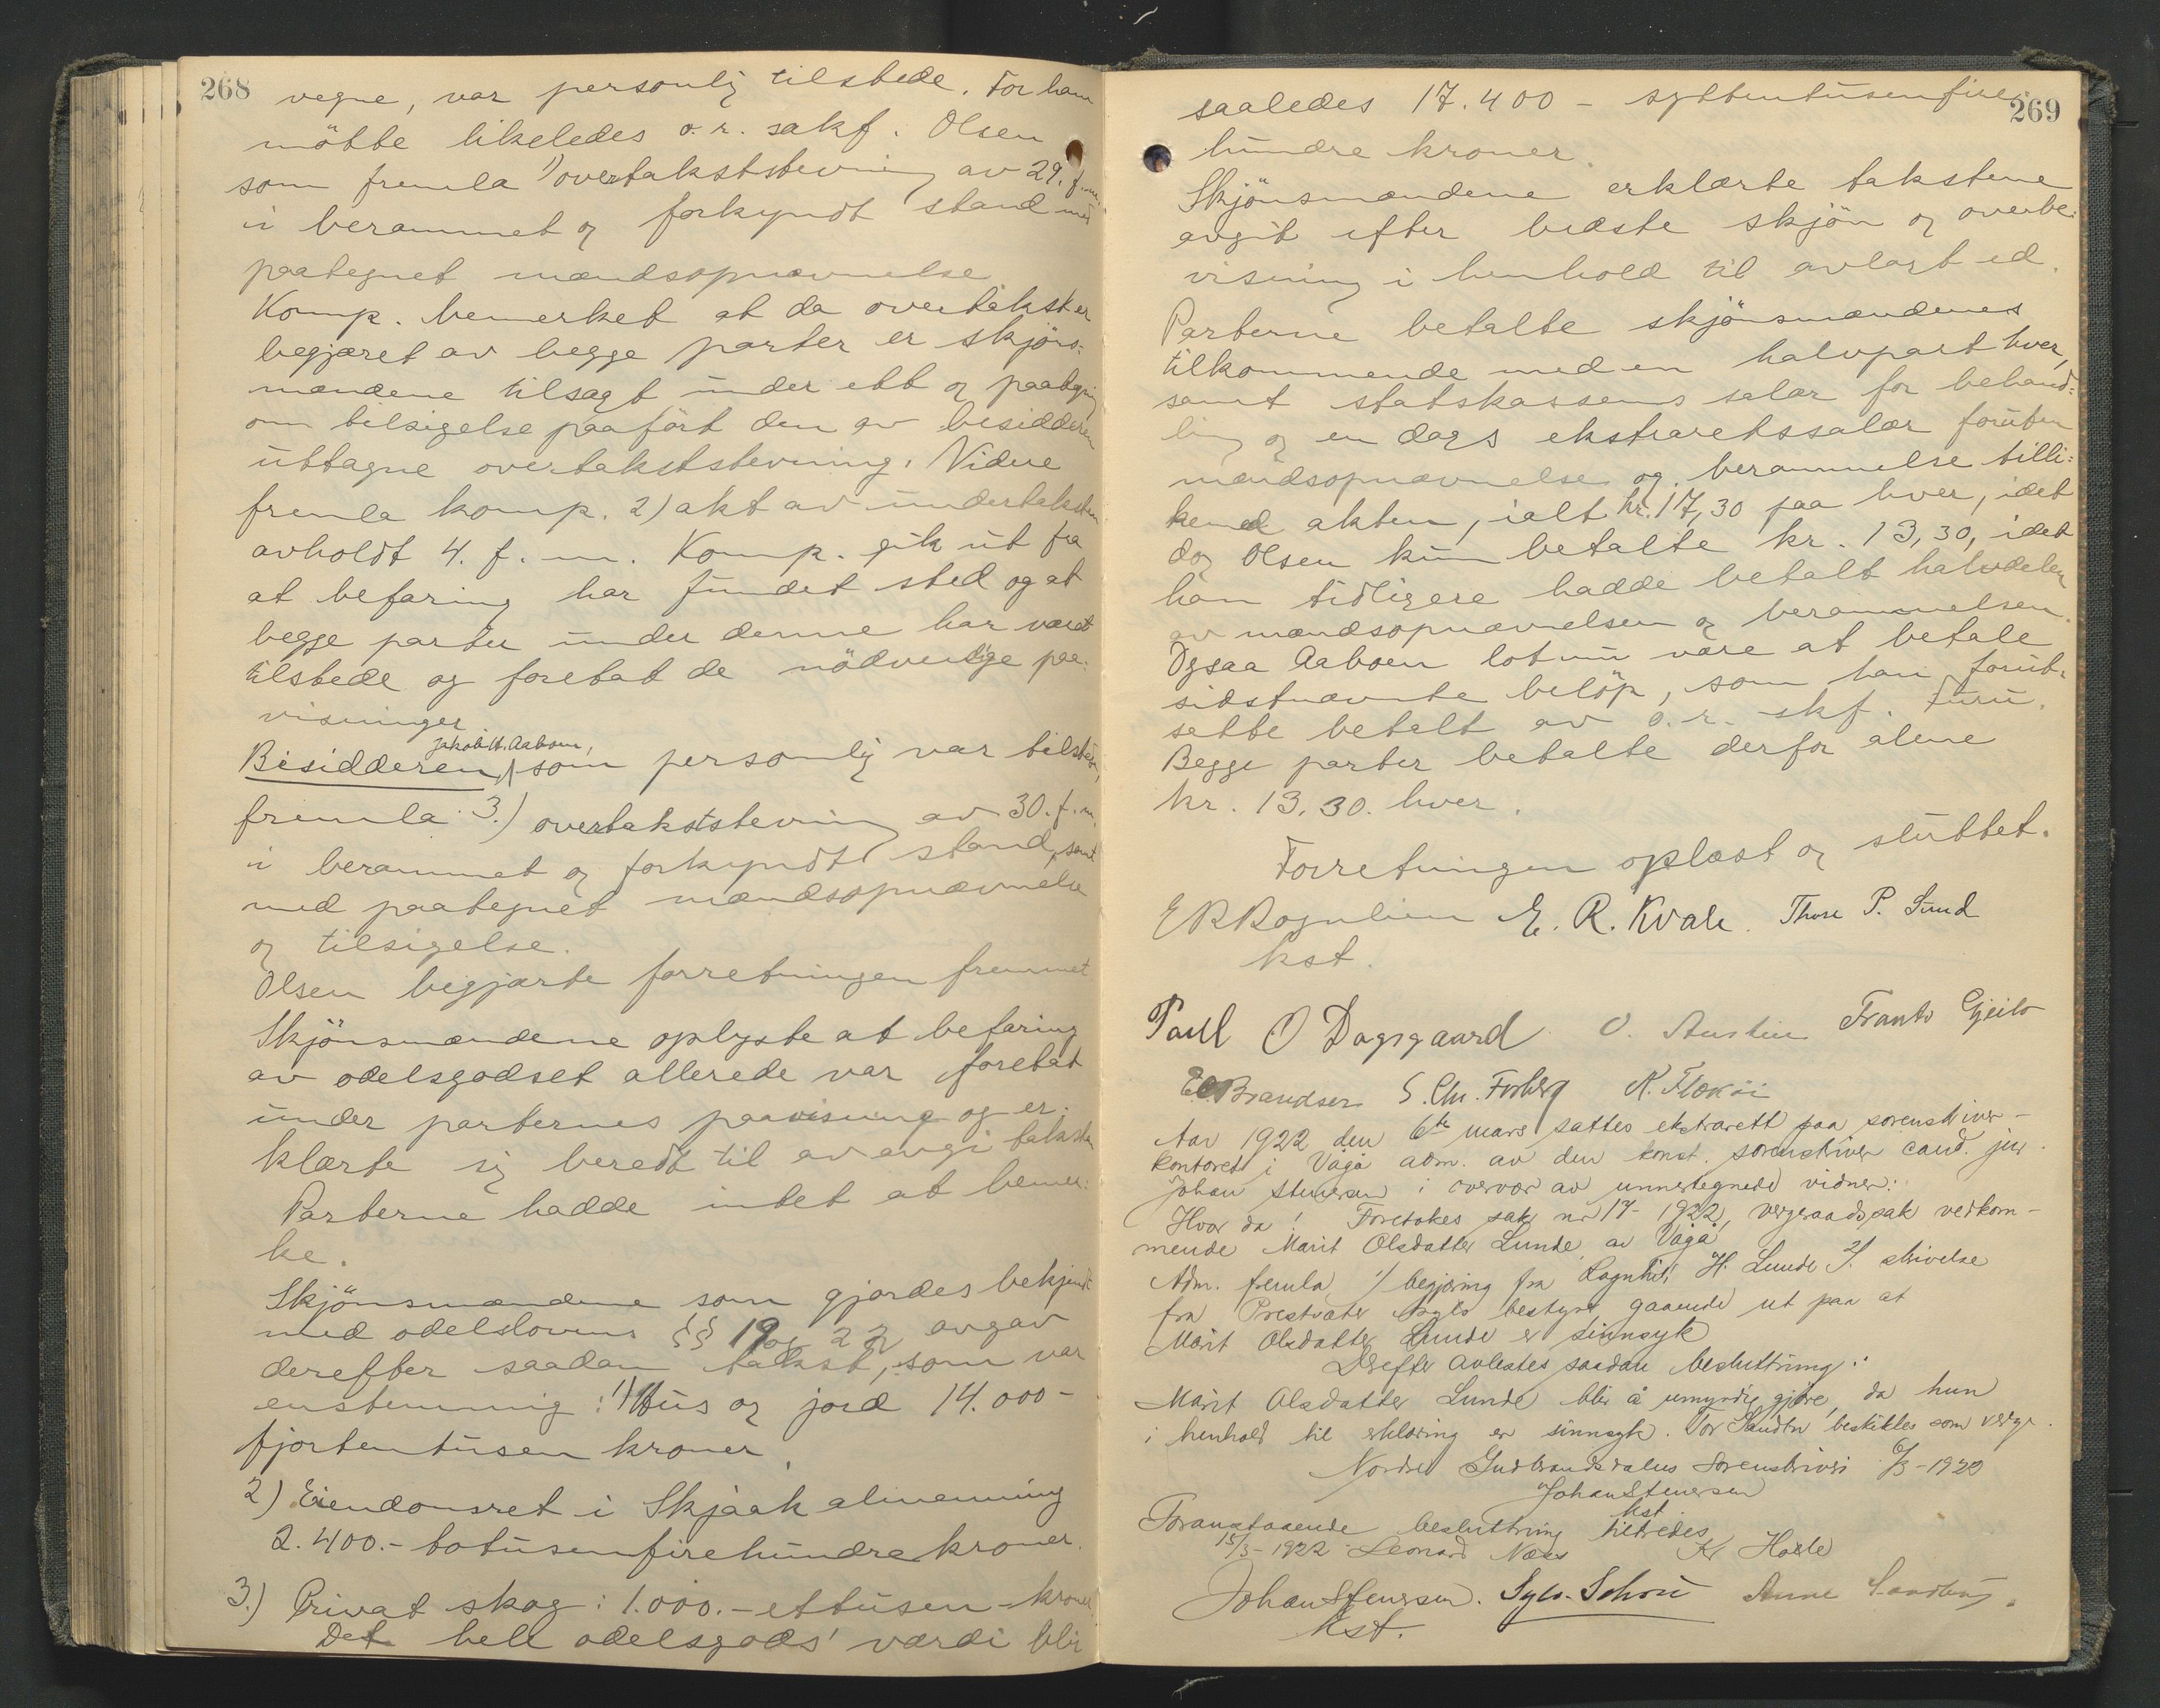 268
vegne, var personlig tilstede. For ham
mötte likeledes o.r. sakf. Olsen
som fremla 1) overtakststevning av 29. f.m.
i berammet og forkyndt stand med
paategnet mændsopnævnelse
Komp. bemerket at da overtakst er
begjæret av begge parter er skjöns-
mændene tilsagt under ett og paategning
om tilsigelse paafört den av besidderen
uttagne overtakststevning. Videre
fremla komp. 2) akt av undertaksten
avholdt 4. f. m. Komp. gik ut fra
at befaring har fundet sted og at
begge parter under denne har været
tilstede og foretat de nödvendige paa-
visninger.
Jakob H. Aaboen,
Besidderen, som personlig var tilstede,
fremla 3.) overtakststevning av 30. f.m.
i berammet og forkyndt stand, samt
med paategnet mændsopnævnelse
og tilsigelse.
Olsen begjærte forretningen fremmet
Skjönsmændene oplyste at befaring
av odelsgodset allerede var foretat
under parternes paavisning og er-
klærte sig beredt til av avgi taksten
Parterne hadde intet at bemer-
ke.
Skjönsmændene som gjordes bekjendt
med odelslovens §§ 19 og 22 avgav
derefter saadan takst, som var
enstemmig: 1) Hus og jord 14.000 -
fjortentusen kroner
2) Eiendomsret i Skjaak almenning
2.400.- totusenfirehundre kroner.
3.) Privat skog: 1.000.- ettusen - kroner
Det hell odelsgods' værdi blir
269
saaledes 17.400 - syttentusenfire
hundre kroner.
Skjönsmændene erklærte takstene
avgit efter bedste skjön og overbe-
visning i henhold til avlagt ed.
Parterne betalte skjönsmændenes
tilkommende med en halvpart hver,
samt statskassens salær for behand-
ling og en dags ekstraretssalær foruten
mændsopnævnelse og berammelse tilli-
kemed akten, ialt kr. 17,30 paa hver, idet
dog Olsen kun betalte kr. 13,30, idet
han tidligere hadde betalt halvdelen
av mændsopnævnelsen og berammelsen.
Ogsaa Aaboen lot nu være at betale
sidstnævnte belöp, som han forut-
sette betalt av o.r. skf. Furu.
Begge parter betalte derfor alene
kr. 13.30. hver.
Forretningen oplæst og sluttet.
E R Rognlien E. R. Kvale. Thore P. Sund
kst.
Paul O Dagsgaard O. Austin Frants Gjeilo
Brandser S. Chr. Forberg K. Flækøi
Aar 1922 den 6te mars sattes ekstrarett paa sorenskriver-
kontoret i Vågå adm. av den konst. sorenskriver cand. jur
Johan Stenersen i overvær av unnertegnede vidner:
Hvor da! Foretokes sak nr 17 - 1922, vergeraadssak vedkom-
mende Marit Olsdatter Lunde av Vågå
Adm. femla 1/ begjæring fra Ragnhil H. Lunde 2/. skrivelse
fra Prestsæter Asyls bestyrer gaaende ut paa at
Marit Olsdatter Lunde er sinnsyk
Derefter avlestes saadan beslutning:
Marit Olsdatter Lunde blir å umyndiggjöre, da hun
i henhold til erklæring er sinnsyk. Tor Sandbu beskikkes som verge.
Nordre Gudbrandsdalens Sorenskriveri 6/3 - 1922
Johan Stenersen
kst.
Foranstaaende beslutning tiltredes
15/3 - 1922 Leonard Næss K. Hosle
Johan Stenersen. Sylv. Schou Anne Sandbu.
kst.